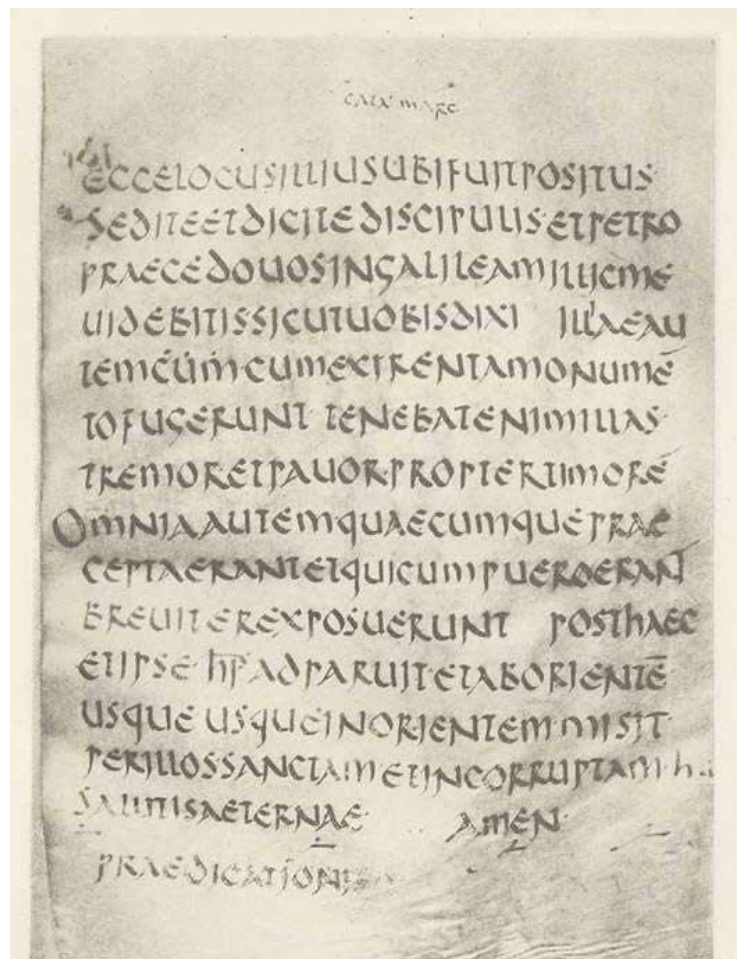 CATA MARC
ECCELOCUSILLIUSUBIFUITPOSITUS
SEDITEETDICITEDISCIPULISETPETRO
PRAECEDOUOSINGALILEAMILLICME
UIDEBITISSICUTUOBISDIXI ILLAEAU
TEMCUMCUMEXIRENTAMONUMĒ
TOFUGERUNT TENEBATENIMILLAS
TREMORETPAUORPROPTERTIMORĒ
OMNIAAUTEMQUAECUMQUEPRAE
CEPTAERANTETQUICUMPUEROERANT
BREUITEREXPOSUERUNT POSTHAEC
ETIPSE H̅P̅ ADPARUITETABORIENTĒ
USQUE USQUEINORIENTEM MISIT
PERILLOSSANCTAMETINCORRUPTAM
SALUTISAETERNAE AMEN
PRAEDICATIONIS